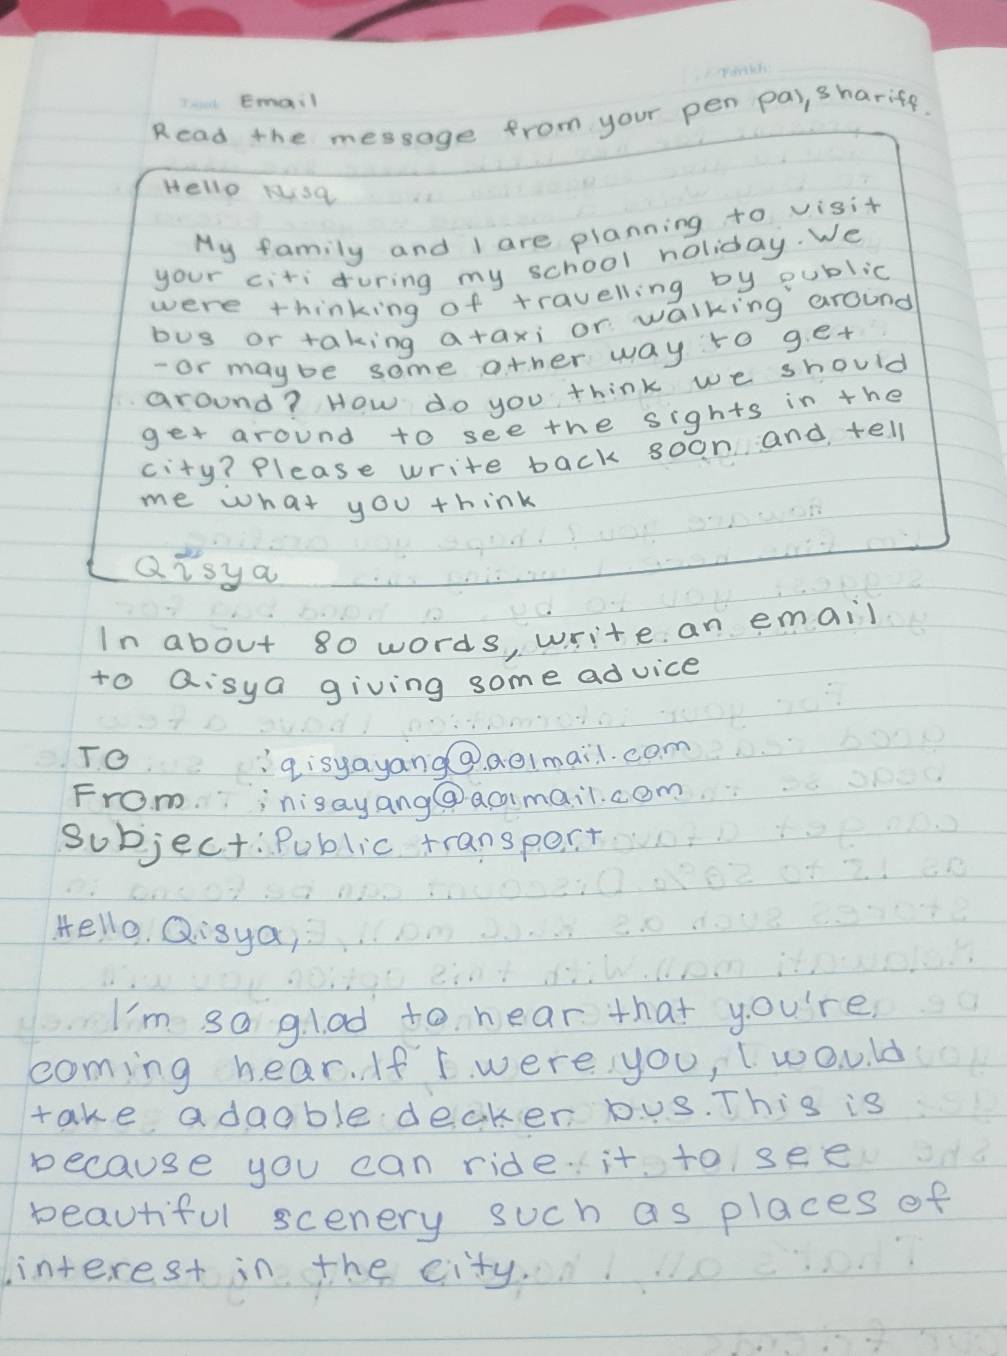 Email
Read the message from your pen pal, shariff.
Hello Nisa
My family and I are planning to visit
your citi during my school holiday. We
were thinking of travelling by public
bus or taking a taxi or walking around
- or maybe some other way to get
around? How do you think we should
get around to see the sights in the
city? Please write back soon and tell
me what you think
Qisya
In about 80 words, write an email
to Qisya giving some advice
To : qisyayang@aolmail.com
From : nisayang@aolmail.com
Subject : Public transport
Hello Qisya,
I'm so glad to hear that you're
coming hear. If I were you, I would
take a daoble decker bus. This is
because you can ride it to see
beautiful scenery such as places of
interest in the city.